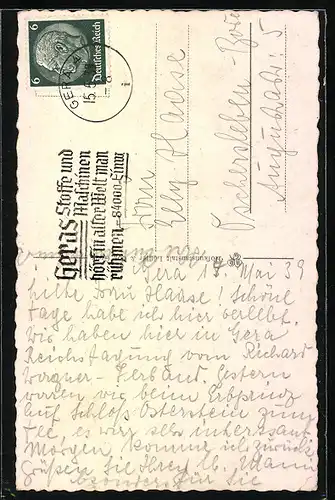 6
Deutsches Reich
6
GERA
15.5
Geras Stoffe und
Maschinen
hört in aller Welt man
rühmen - 84000 Einw
Frau
Elly Haase
Oschersleben-Bode
5
Gera 15. Mai 39
Frau Haase! Schöne
Tage habe ich hier verlebt.
Wir haben hier in Gera
Reichstagung vom Richard
Wagner-Verband. Gestern
waren wir beim Erbprinz
auf Schloß Osterstein zum
Tee es war sehr interessant
Morgen komme ich zurück
Grüßen Sie Ihren lb. Mann
besonders Sie